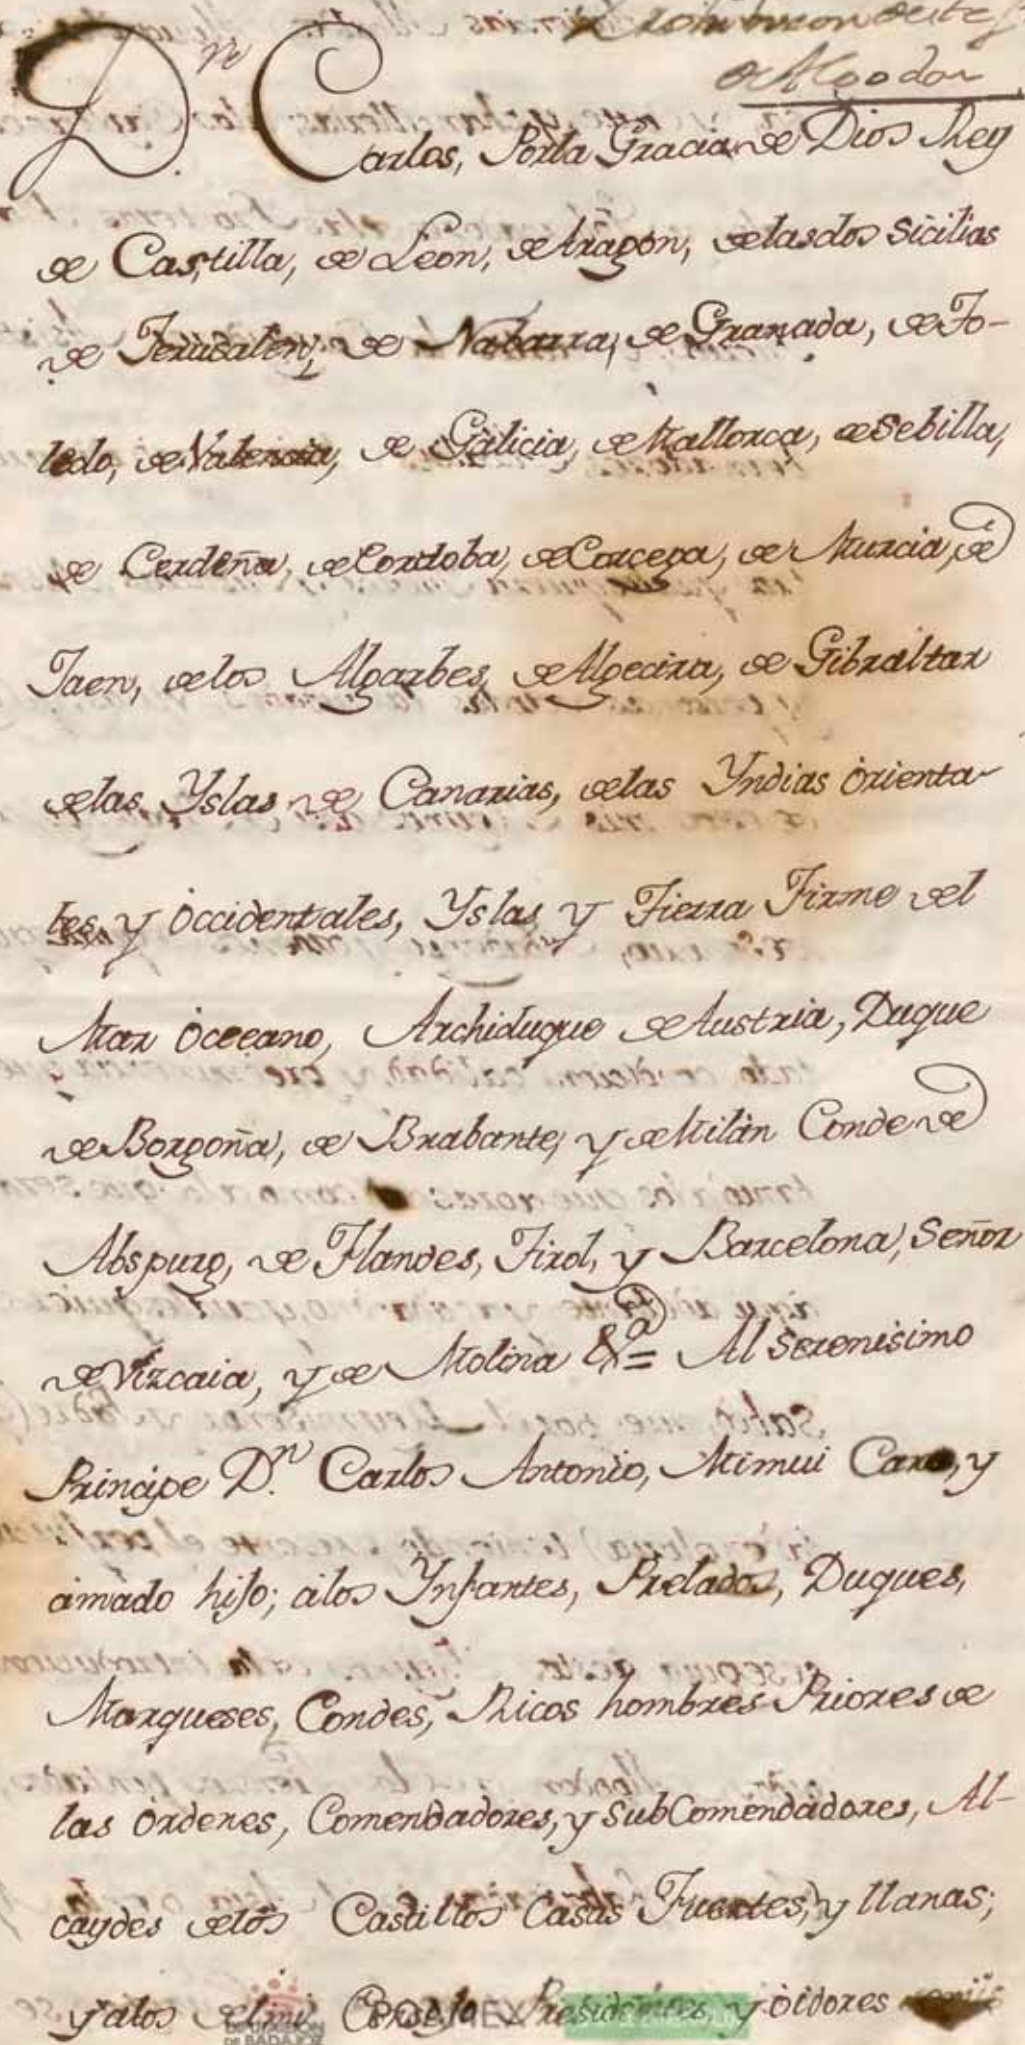 de Alcodor
Dn Carlos, Porla Gracia de Dios Rey
de Castilla, de Leon, de Aragon, delasdos Sicilias
de Jerusalen, de Nabarra, de Granada, de To-
ledo, de Valencia, de Galicia, de Mallorca, de Sebilla,
de Cerdeña, de Cordoba, de Corcega, de Murcia, de
Jaen, delos Algarbes, de Algecira, de Gibraltar
delas Yslas de Canarias, delas Yndias orienta-
les, y occidentales, Yslas, y Tierra Firme del
Mar Occeano, Archiduque de Austria, Duque
de Borgoña, de Brabante, y de Milán Conde de
Abspurg, de Flandes, Tirol, y Barcelona, Señor
de Vizcaia, y de Molina &a = Al Serenisimo
Principe Dn Carlos Antonio, Mimui Caro, y
amado hijo; alos Ynfantes, Prelados, Duques,
Marqueses, Condes, Ricos hombres Priores de
las ordenes, Comendadores, y SubComendadores, Al-
caydes delos Castillos Casas Fuertes, y llanas;
y alos delmi Consejo Presidentes, y oidores